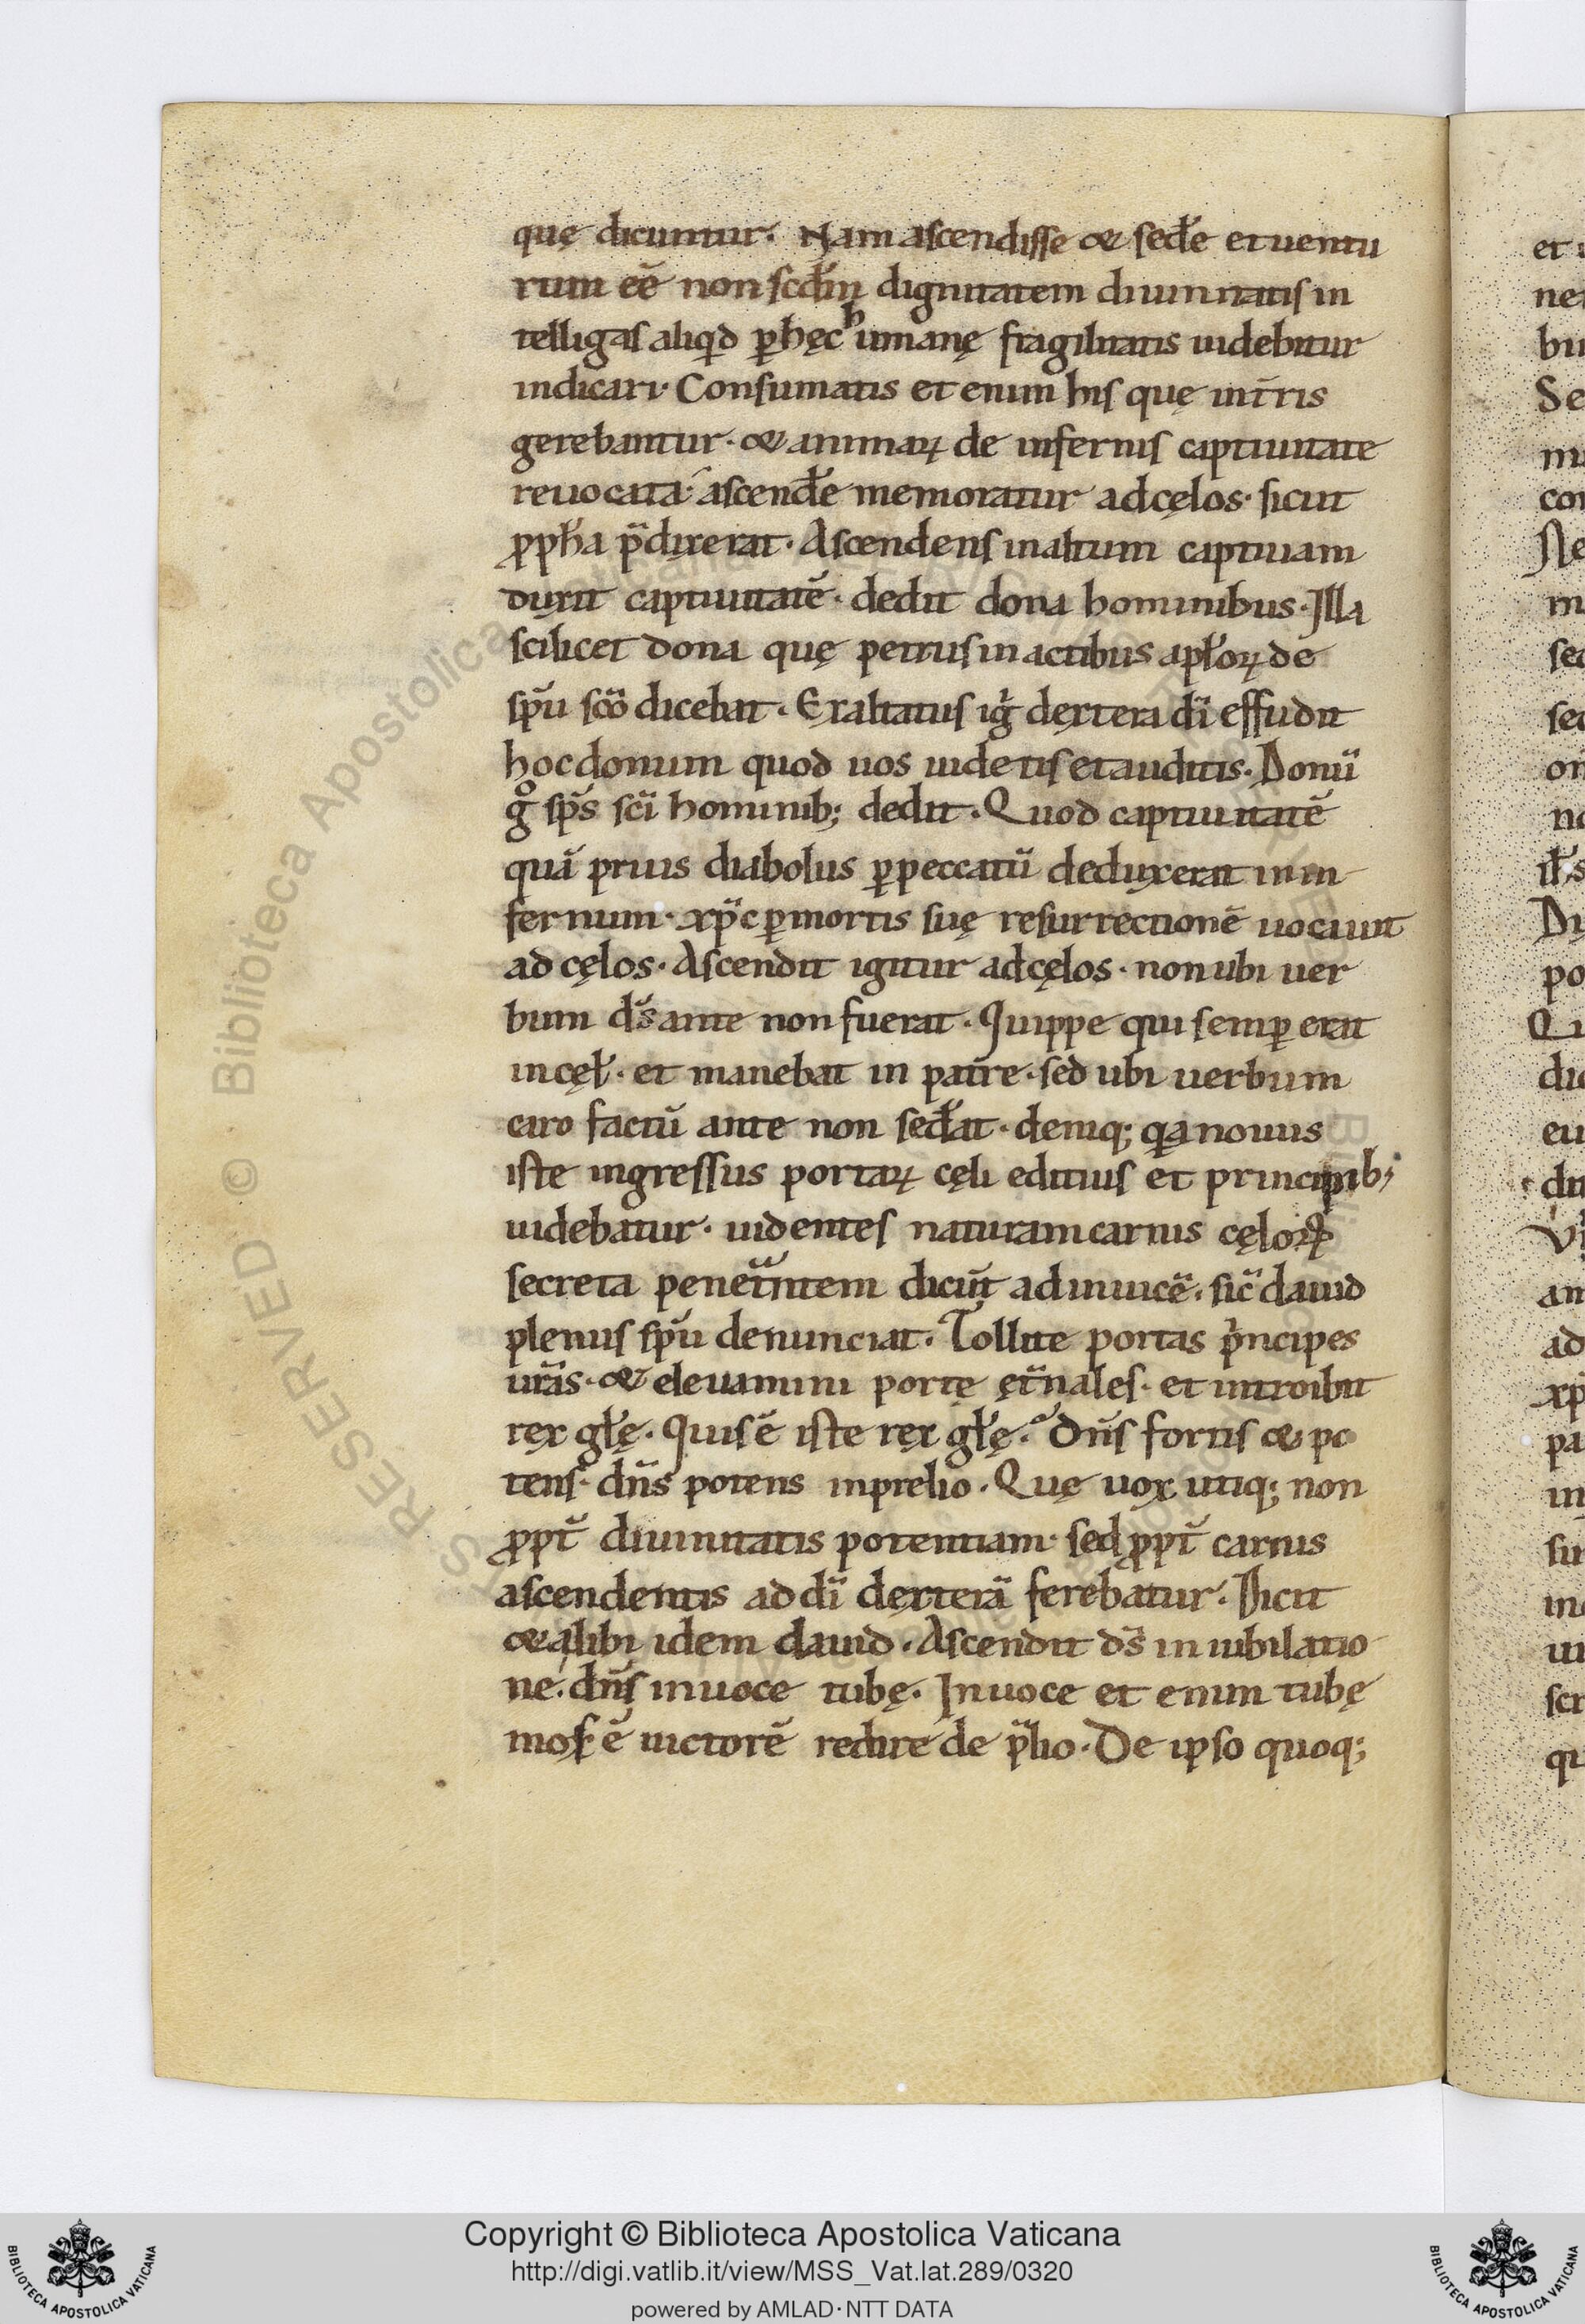 quę dicuntur. Nam ascendisse & sedr̄e et uentu
rum eē non scdm̄ dignitatem diuinitatis in
telligas aliqd ꝑ hęc humanę fragilitatis uidebitur
indicari. Consumatis et enim his quę int̄ris
gerebantur. & animaꝝ de infernis captiuitate
reuocata. ascendr̄e memoratur ad cęlos. sicut
ꝓph̄a p̄dixerat. Ascendens in altum captiuam
duxit captiuitatē. dedit dona hominibus. Illa
scilicet dona quę petrus in actibus apl̄oꝝ de
sp̄u sc̄o dicebat. Exaltatus iḡ dextera dī effudit
hoc donum quod uos uidetis et auditis. Donū
gͦ sp̄s sc̄i hominib; dedit. Quod captiuitatē
quā prius diabolus ꝑ peccatū deduxerat in in
fernum. xp̄c ꝑ mortis suę resurrectionē uocauit
ad cęlos. Ascendit igitur ad cęlos. non ubi uer
bum ds̄ ante non fuerat. Quippe qui semꝑ erat
in cęl̄. et manebat in patre. sed ubi uerbum
caro factū ante non sedr̄at. deniq; qa nouus
iste ingressus portaꝝ cęli editiuis et principib;
uidebatur. uidentes naturam carnis cęloꝝ
secreta penetrantem dicūt ad inuicē. sic̄ dauid
plenus sp̄u denunciat. Tollite portas pⁱncipes
ur̄as. & eleuamini portę ęt̄nales. et introibit
rex gl̄ę. Quis ē iste rex gl̄ę. Dn̄s fortis & po
tens. dn̄s potens in prelio. Quę uox utiq; non
ꝓpt̄ diuinitatis potentiam. sed ꝓpt̄ carnis
ascendentis ad dī dexterā ferebatur. Dicit
& alibi idem dauid. Ascendit ds̄ in iubilatio
ne. dn̄s in uoce tubę. In uoce et enim tubę
mos ē uictorē redire de p̄lio. De ipso quoq;
et
Copyright © Biblioteca Apostolica Vaticana
http://digi.vatlib.it/view/MSS_Vat.lat.289/0320
powered by AMLAD · NTT DATA
BIBLIOTECA APOSTOLICA VATICANA
BIBLIOTECA APOSTOLICA VATICANA